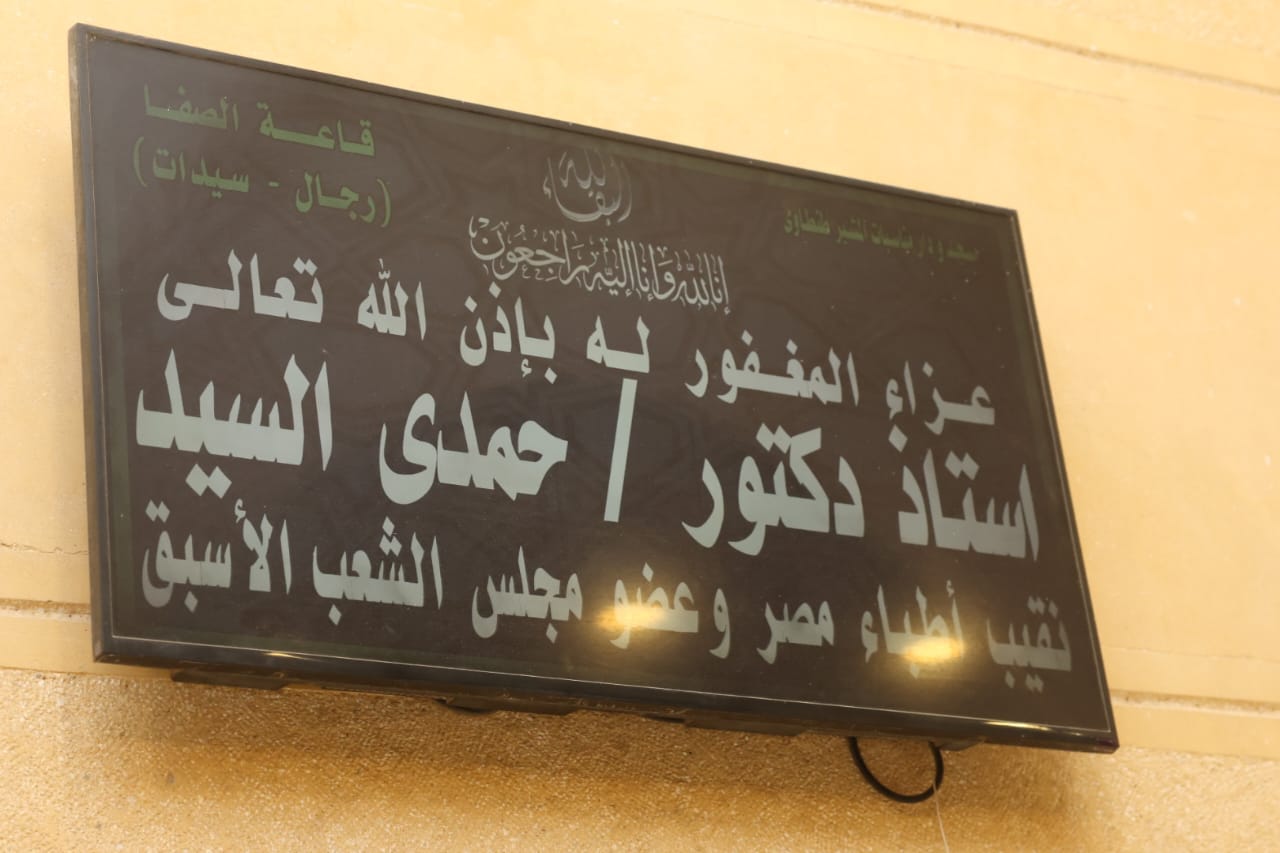 مسجد ودار مناسبات المشير طنطاوى
قاعة الصفا
(رجال - سيدات)
البقاء لله
إنا لله وإنا إليه راجعون
عزاء المغفور له بإذن الله تعالى
استاذ دكتور / حمدى السيد
نقيب أطباء مصر وعضو مجلس الشعب الأسبق